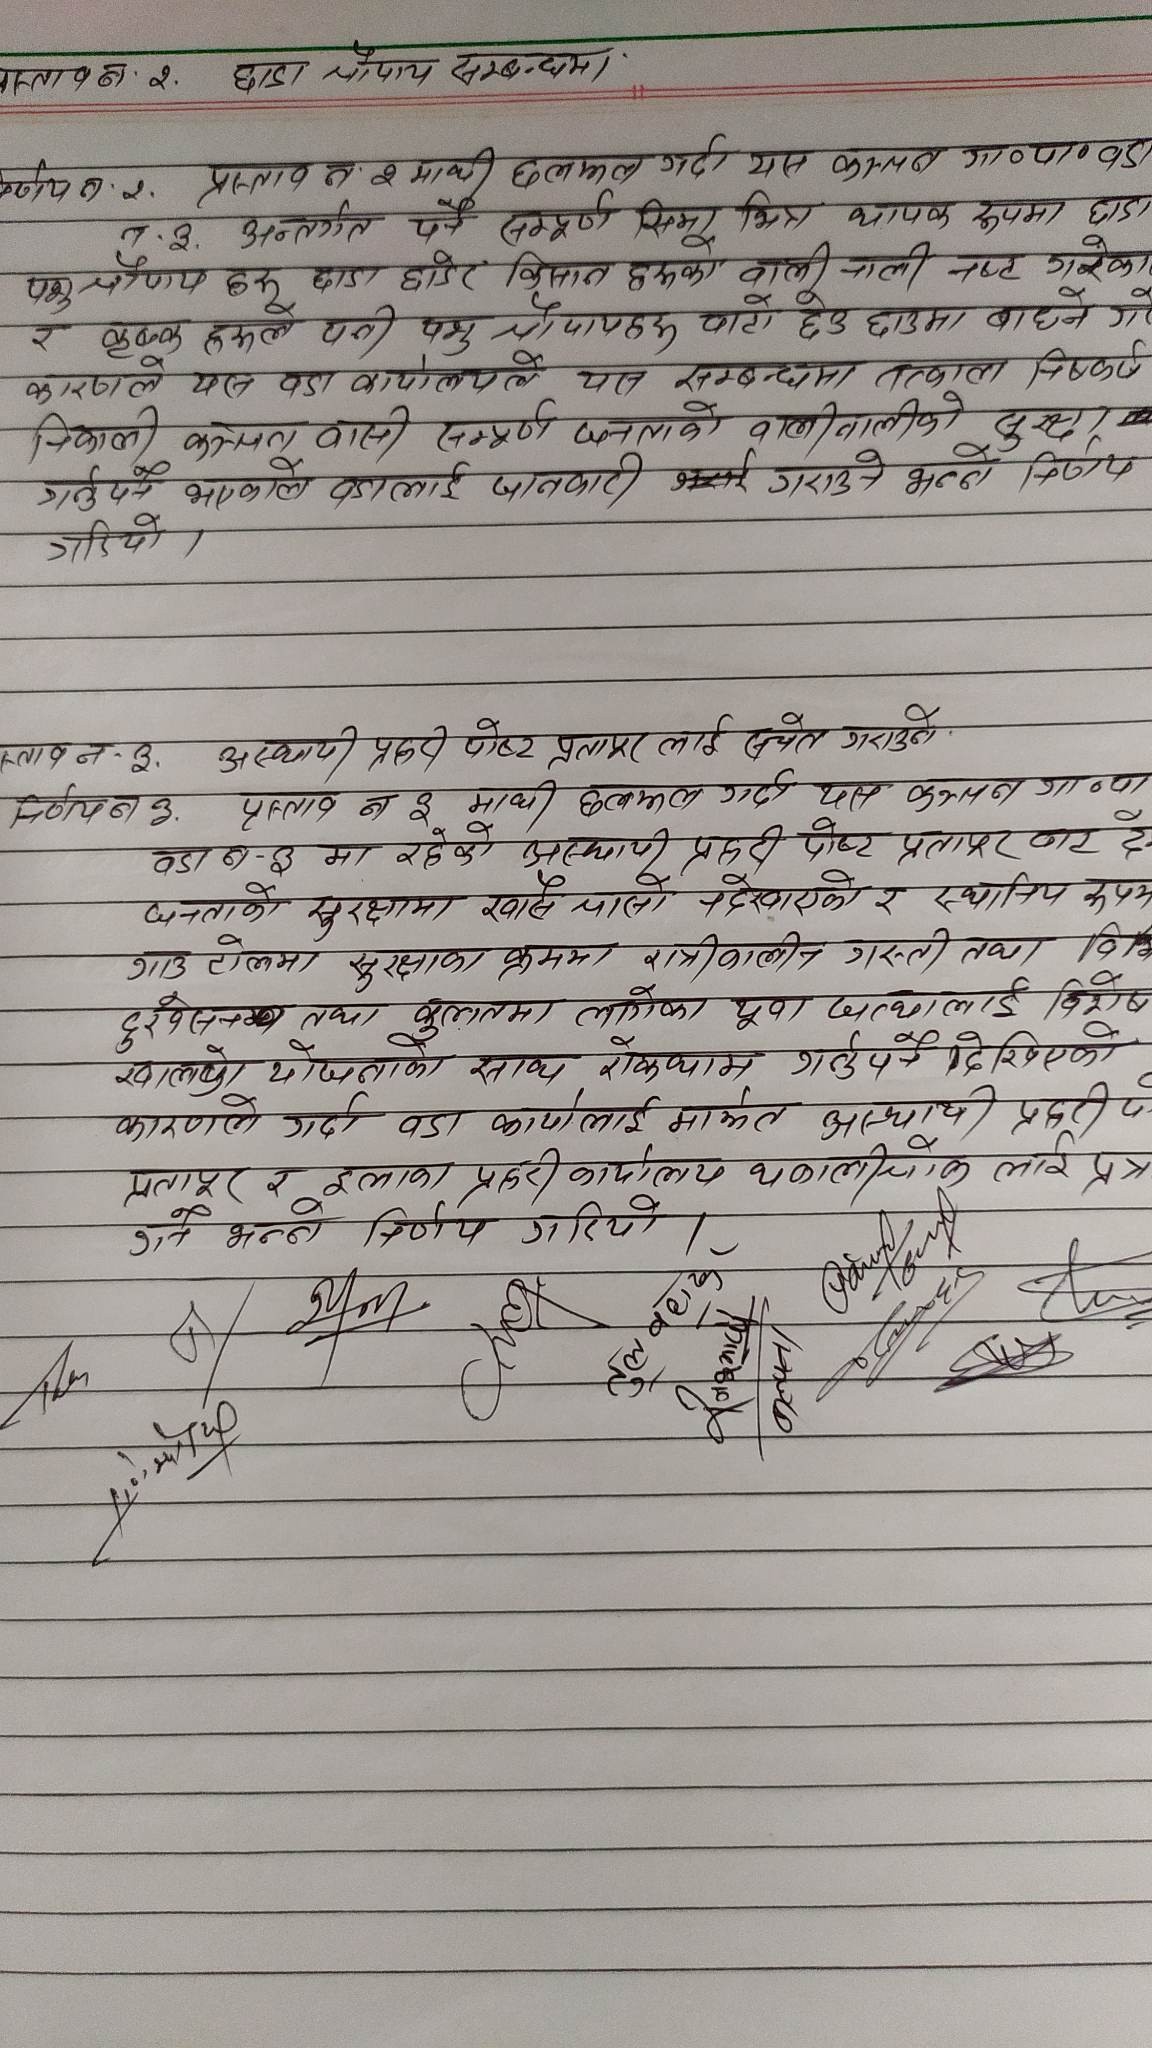 स्ताव न. २. छाडा चौपाय सम्बन्धमा.
र्णय न. २. प्रस्ताव न. २ माथी छलफल गर्दा यस कञ्चन गा०पा० वडा
न. ३. अन्तर्गत पर्ने सम्पूर्ण सिमा भित्र व्यापक रूपमा छाडा
पशु चौपाय हरू छाडा छाडेर किसान हरूको वाली नाली नष्ट गरेका
र कृषक हरूले पनी पशु चौपायहरू वाटो छेउ छाउमा बाधने गरे
कारणले यस वडा कार्यालयले यस सम्बन्धमा तत्काल निष्कर्ष
निकाली कञ्चन वासी सम्पूर्ण जनताको वालीनालीको सुरक्षा
गर्नुपर्ने भएकोले वडालाई जानकारी गराउने भन्ने निर्णय
गरियो ।
स्ताव न. ३. अस्थायी प्रहरी पोष्ट प्रतापपुर लाई सचेत गराउने.
निर्णय न ३. प्रस्ताव न ३ माथी छलफल गर्दा यस कञ्चन गा०पा
वडा न. ३ मा रहेको अस्थायी प्रहरी पोष्ट प्रतापपुर वाट
जनताको सुरक्षामा खासै चासो नदेखाएको र स्थानिय रूपम
गाउ टोलमा सुरक्षाका क्रममा रात्रीकालीन गस्ती तथा
दुरवेसन तथा कुलतमा लागेका यूवा जत्थालाई विशेष
खालको योजनाको साथ रोकथाम गर्नुपर्ने देखिएको
कारणले गर्दा वडा कार्यालाई मार्फत अस्थायी प्रहरी पो
प्रतापपुर र इलाका प्रहरी कार्यालय थकालीचोक लाई पत्र
गर्ने भन्ने निर्णय गरियो ।